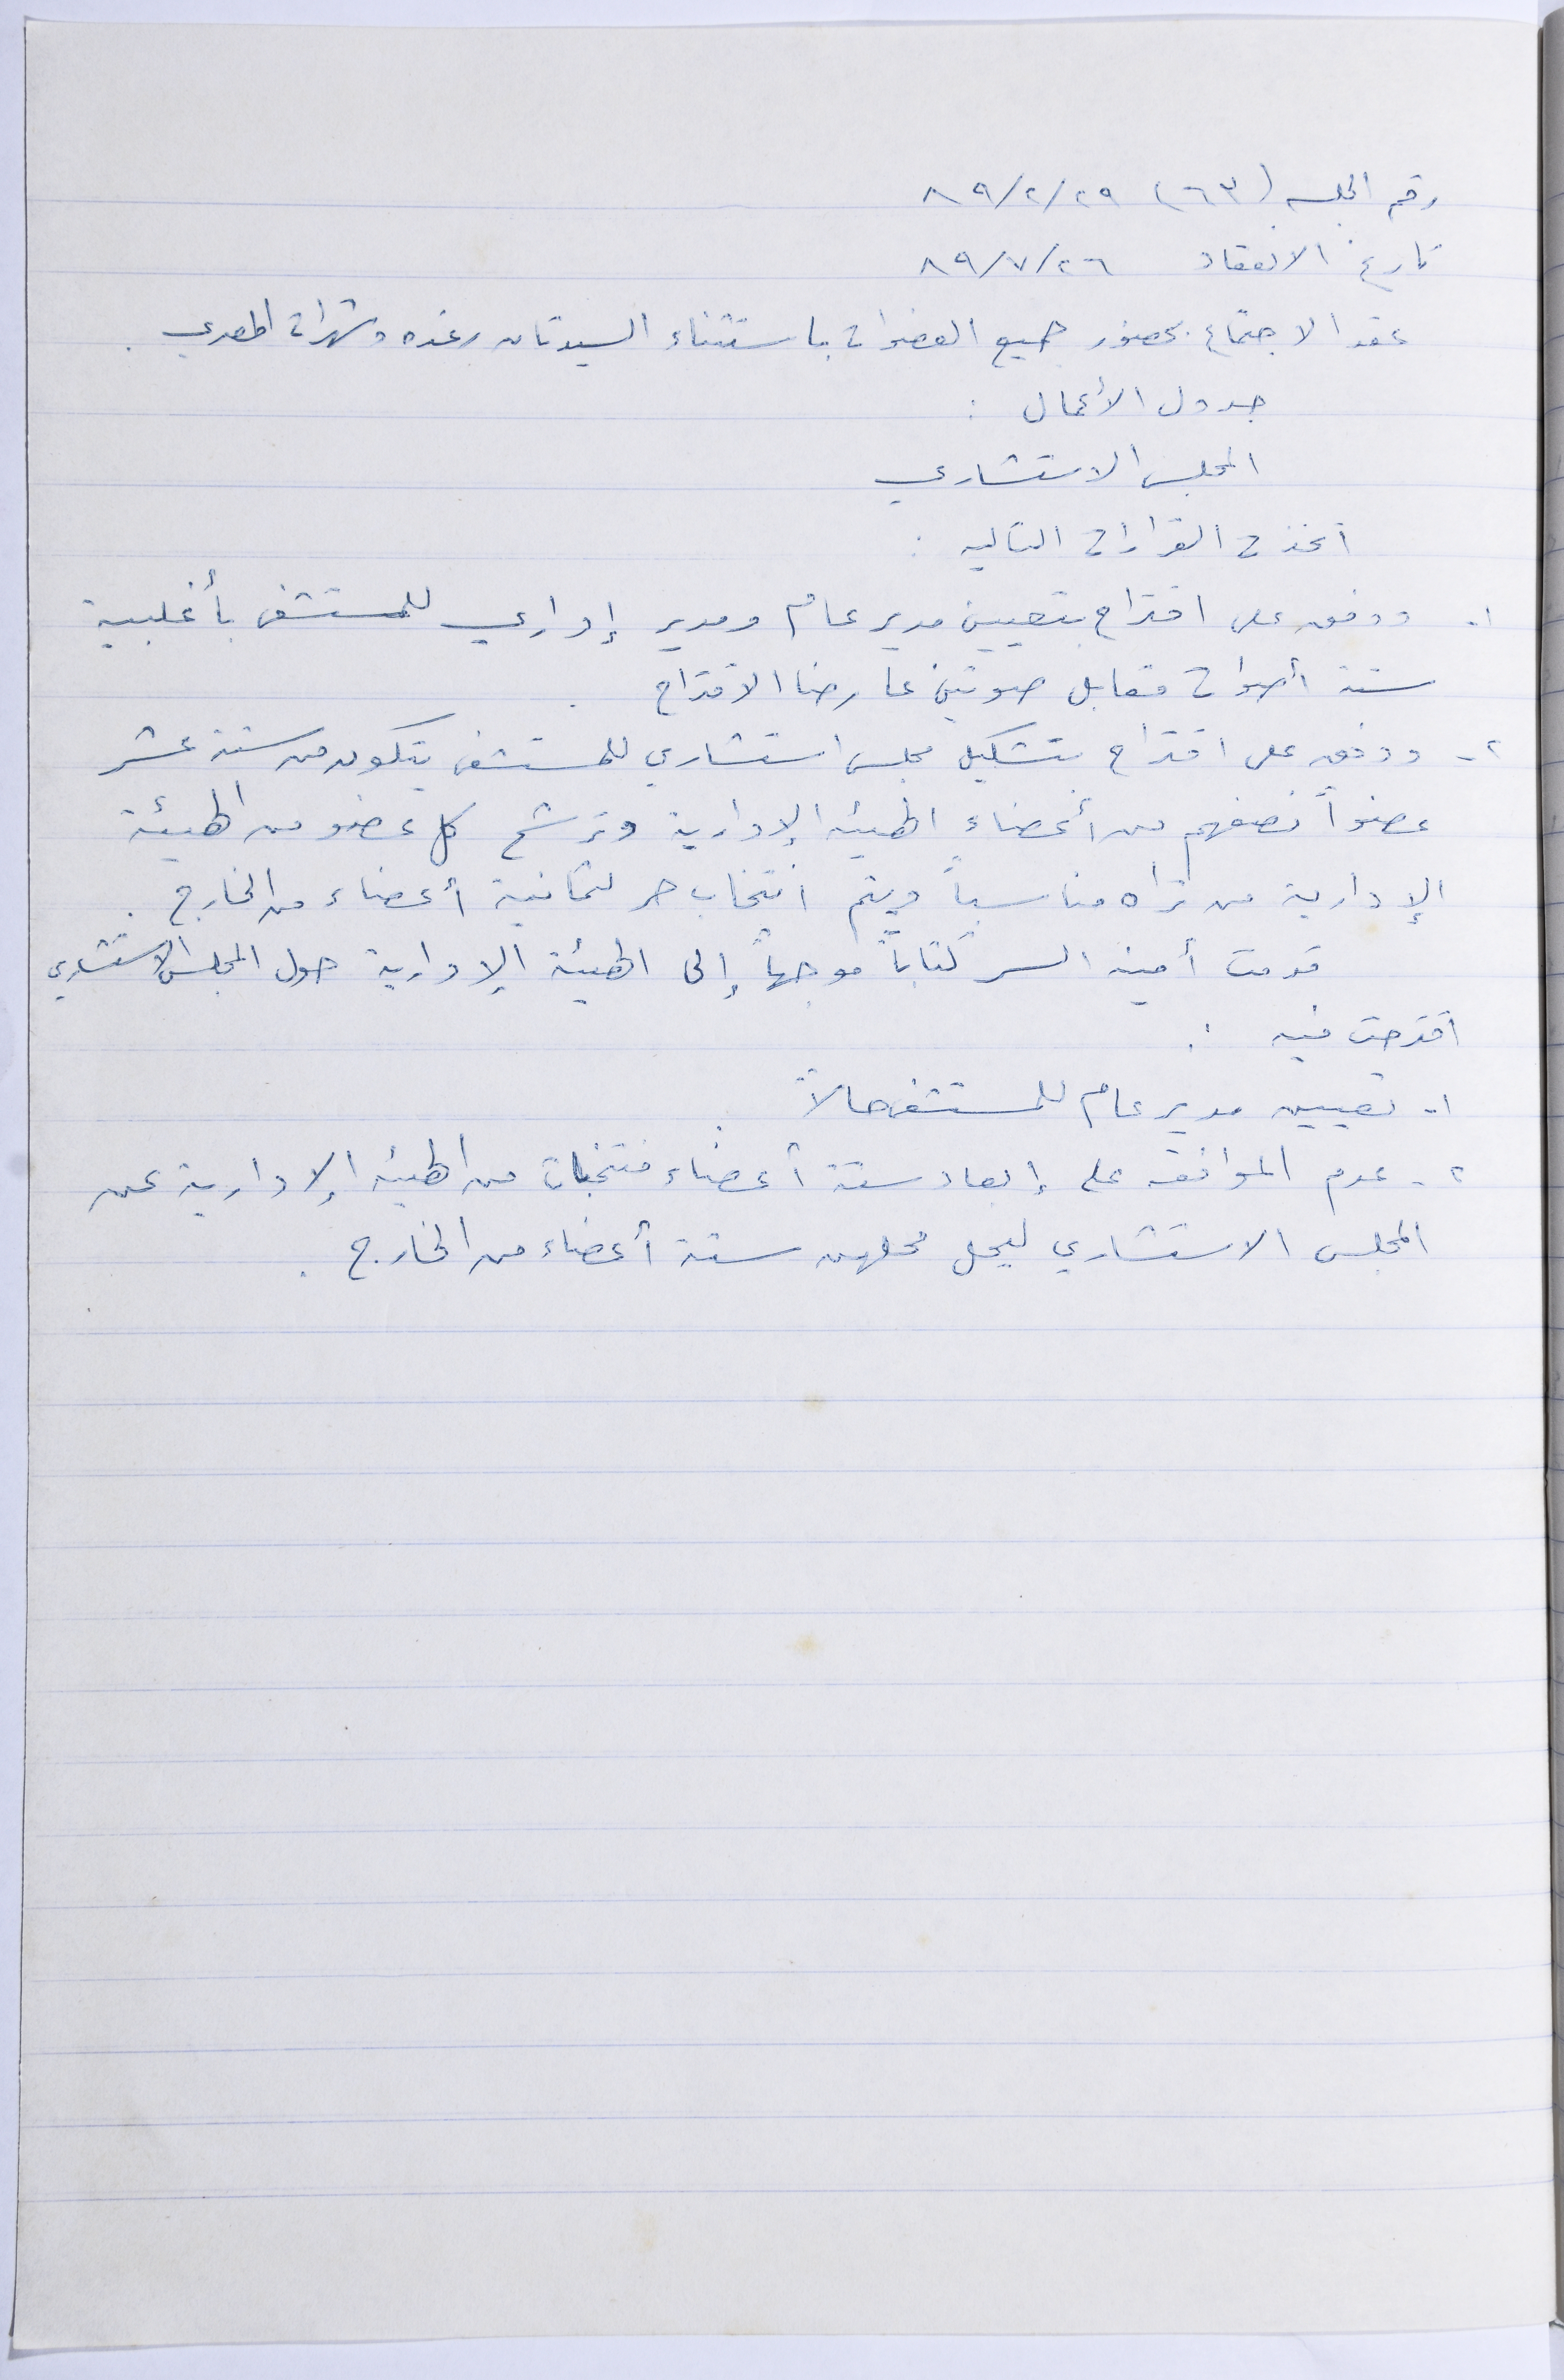 رقم الجلسه (٦٣) ٨٩/٢/٢٩
تاريخ الانعقاد ٨٩/٧/٢٦
عقد الاجتماع بحضور جميع العضوات باستثناء السيدتان رغده وشهرات المصري .
جدول الأعمال :
المجلس الاستشاري
اتخذت القرارات التاليه :
١- ووفق على اقتراح بتعيين مدير عام ومدير إداري للمستشفى بأغلبية
ستة أصوات مقابل صوتين عارضا الاقتراح .
٢- ووفق على اقتراح بتشكيل مجلس استشاري للمستشفى يتكون من ستة عشر
عضواً نصفهم من أعضاء الهيئه الإدارية وترشح كل عضو من الهيئة
الإدارية من تراه مناسباً ويتم انتخاب حر لثمانية أعضاء من الخارج .
قدمت أمينه السر كتاباً موجهاً إلى الهيئة الإدارية حول المجلس الاستشاري
اقترحت فيه :
١- تعيين مدير عام للمستشفى حالاً .
٢- عدم الموافقه على إبعاد ستة أعضاء منتخبات من الهيئه الإدارية عن
المجلس الاستشاري ليحل محلهن ستة أعضاء من الخارج .